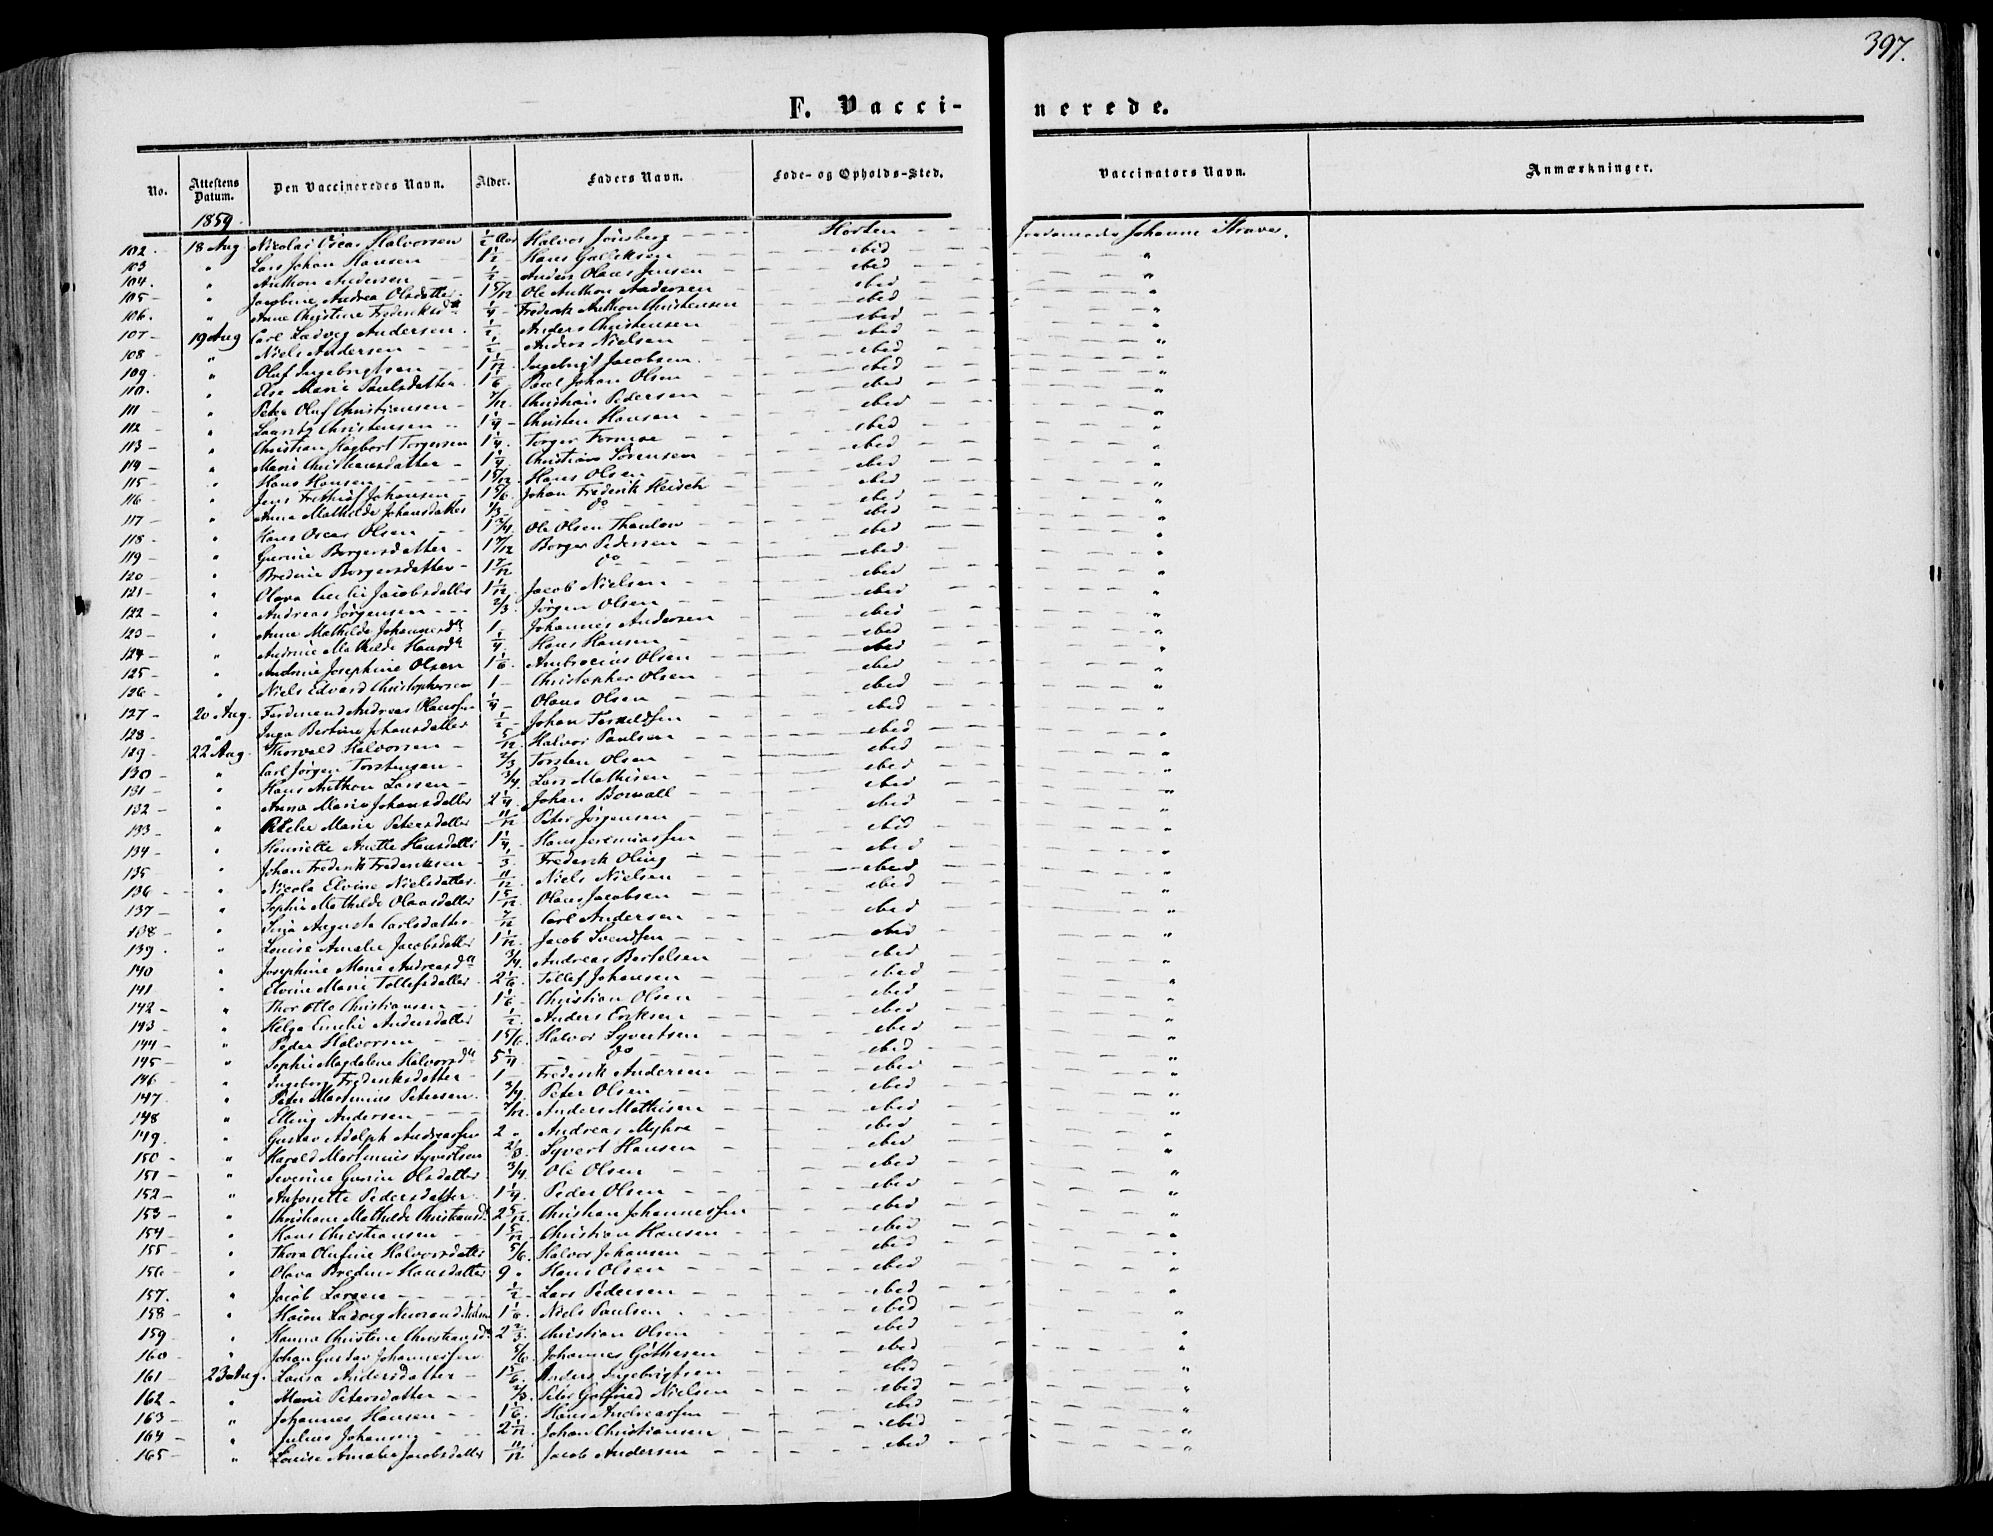 397.
F. Vacci- nerede.
No. Attestens Datum. Den Vaccineredes Navn. Alder. Faders Navn. Føde- og Opholds-Sted. Vaccinators Navn. Anmærkninger.
1859.
102. 18 Aug Nicolai Oscar Halvorsen 1/2 Aar Halvor Horten Johanne
103 " Lars Johan Hansen 1 1/2 Hans ibid "
104. " Anthon Andersen 1/2 Anders Olaus Jensen ibid "
105 " Jacobine Andrea Olsdatter 1 5/12 Ole Anthon Andersen ibid "
106. " Anne Christine Frederiksdtt 1/4 Frederik Anthon Christensen ibid "
107 19 Aug Carl Ludvig Andersen 1/2 Anders Christensen ibid "
108 " Niels Andersen 1/2 Anders Nielsen ibid "
109. " Oluf Ingebrigtsen 1 1/12 Ingebrigt Jacobsen ibid "
110. " Else Marie Paulsdatter 1 1/6 Paul Johan Olsen ibid "
111 " Peter Oluf Christiansen 7/12 Christian Pedersen ibid "
112 " Christensen 1 1/4 Christen Hansen ibid "
113 " Christian Hagbart Torgersen 1 1/4 Torger ibid "
114 " Marie Christiansdatter 1 1/4 Christian Sørensen ibid "
115 " Hans Hansen 1 5/12 Hans Olsen ibid "
116 " Jens Frithiof Johansen 1 5/6 Johan Frederik ibid "
117 " Anna Mathilde Johansdatter 1/3 do ibid "
118 " Hans Oscar Olsen 1 3/4 Ole Olsen Thaulow ibid "
119 " Borgersdatter 1 7/12 Borger Pedersen ibid "
120 " Bredine Borgersdatter 1 7/12 do ibid "
121 " Olava Jacobsdatter 1 1/12 Jacob Nielsen ibid "
122 " Andreas Jørgensen 2/3 Jørgen Olsen ibid "
123 " Anne Mathilde Johannesdtt 1 Johannes Andersen ibid "
124 " Andrine Mathilde Hansdtt 1/4 Hans Hansen ibid "
125 " Andrine Josephine Olsen 1 1/6 Ambrocius Olsen ibid "
126 " Niels Edvard Christophersen 1 Christopher Olsen ibid "
127 20 Aug. Ferdinand Andreas Olaussen 1/4 Olaus Olsen ibid "
128 " Inga Bertine Johansdatter 1/2 Johan Terkeldsen ibid "
129 22 Aug Thorvald Halvorsen 5/12 Halvor Paulsen ibid "
130 " Carl Jørgen Torstensen 2/3 Torsten Olsen ibid "
131 " Hans Anthon Larsen 3/4 Lars Mathisen ibid "
132 " Anna Marie Johansdatter 2 1/4 Johan ibid "
133 " Marie Petersdatter 11/12 Peter Jørgensen ibid "
134 " Henriette Anette Hansdatter 1 1/4 Hans Jeremiassen ibid "
135 " Johan Frederik Frederiksen 1/3 Frederik ibid "
136 " Nicola Elvine Nielsdatter 11/12 Niels Nielsen ibid "
137 " Sophie Mathilde Olausdatter 1 5/12 Olaus Jacobsen ibid "
138 " Augusta Carlsdatter 7/12 Carl Andersen ibid "
139. " Louise Amalie Jacobsdatter 1 1/12 Jacob Svendsen ibid "
140 " Josephine Marie Andreasdtt 3/4 Andreas Bertelsen ibid "
141 " Elvine Marie Tollefsdatter 2 1/6 Tollef Johansen ibid "
142 " Thor Otto Christiansen 1 1/6 Christian Olsen ibid "
143 " Helga Emelie Andersdatter 1/2 Anders Eriksen ibid "
144 " Peder Halvorsen 1 5/6 Halvor Syvertsen ibid "
145 " Sophie Magdalene Halvorsdtt 5 1/4 do ibid "
146 " Ingeborg Frederiksdatter 1 Frederik Andersen ibid "
147 " Peter Martinius Petersen 3/4 Peter Olsen ibid "
148 " Elling Andersen 7/12 Anders Mathisen ibid "
149. " Gustav Adolph Andreassen 2 Andreas Myhre ibid "
150 " Harald Martinius Syvertsen 2/3 Syvert Hansen ibid "
151 " Severine Gurine Olsdatter 3/4 Ole Olsen ibid "
152 " Antonette Pedersdatter 1 1/4 Peder Olsen ibid "
153 " Christiane Mathilde Christiansdt 2 5/12 Christian Johannessen ibid "
154 " Hans Christiansen 1 5/12 Christian Hansen ibid "
155 " Thora Olufine Halvorsdatter 5/6 Halvor Johansen ibid "
156 " Olava Bredine Hansdatter 9 Hans Olsen ibid "
157. " Jacob Larsen 1/2 Lars Pedersen ibid "
158 " Ludvig 1 1/6 Niels Paulsen ibid "
159 " Hanna Christine Christiansdt 2 2/3 Christian Olsen ibid "
160 " Johan Gustav Johannessen 5/6 Johannes ibid "
161 23 Aug. Lovisa Andersdatter 1 5/6 Anders Ingebrigtsen ibid "
162 " Marie Petersdatter 2/3 Peter Gotfried Nielsen ibid "
163 " Johannes Hansen 1 1/6 Hans Andreassen ibid "
164 " Julius Johansen 2 1/12 Johan Christiansen ibid "
165 " Louise Amalie Jacobsdatter 11/12 Jacob Andersen ibid "